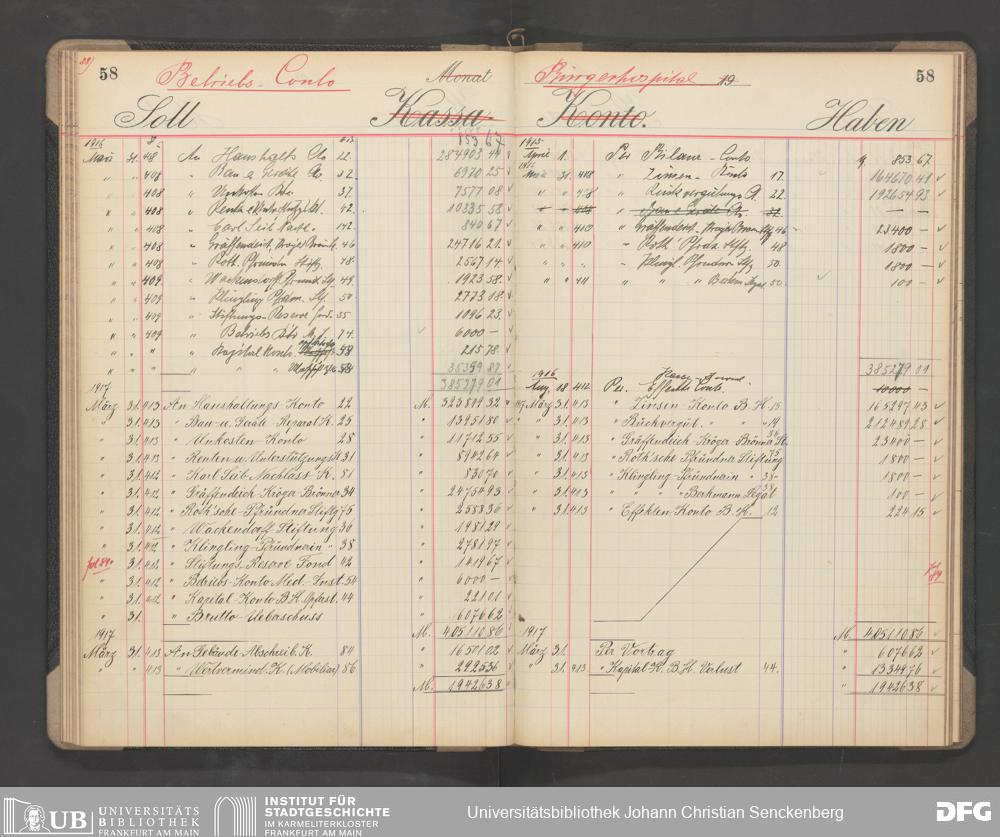 58 Betriebs-Conto Monat
Soll Kassa
1916
März 31. 408 An Haushalts Cto 22. 284903.44
" " 408 " 32. 6970 25
" " 408 " Unkosten 37. 7577 08
" " 408 " 42. 10335 58
" " 408 " Carl 142. 840 67
" " 408 " Gräffendeich. 46 24716 21
" " 408 " Roth 48. 2567 14
" " 409 " Wackendorff 49. 1923 58
" " 409 " Klingling 50 2773 08
" " 409 " Stiftungs-Reserve Fond. 55 1096 23
" " 409 " Betriebs 74. 6000 —
" " " " Kapital Konto 58 215 78
" " " " 35359 87
385279 01
1917
März 31. 413 An Haushaltungs-Konto 22 M. 323899 32
" 31. 413 " Bau- u. Geräte-Reparat K. 25 " 13951 80
" 31. 413 " Unkosten-Konto 28 " 11712 55
" 31. 413 " Renten- u. Unterstützungs K. 31 " 8742 64
" 31. 412 " Karl Seib Nachlass-K. 81 " 830 70
" 31. 412 " Gräffendeich-Kröger-Brönner 34 " 24754 93
" 31. 412 " Roth'sche-Pfründner Stiftg 75 " 2588 36
" 31. 412 " Wackendorff-Stiftung 36 " 1981 29
" 31. 412 " Klingling-Pfründnerin " 38 " 2781 97
" 31. 412 " Stiftungs-Reserve Fond 42 " 1419 67
" 31. 412 " Betriebs-Konto Med. Inst. 54 " 6000 —
" 31. 412 " Kapital-Konto B.H. 44 " 221 01
" 31. " Brutto-Ueberschuss " 6076 62
M. 405110 86
1917
März 31. 413 An Gebäude-Abschreib. K. 84 " 16501 02
" " 413 " Wertvermind. K. (Mobiliar) 86 " 2925 36
M. 19426 38
Bürgerhospital 19 58
Konto. Haben
1915
April 1. Per Bilanz-Conto 9. 853 67
1916
März 31. 408 " Zinsen-Konto 17. 164670.41
" " 408 " Rückvergütungs Ct. 22. 192654 93
" " 410 " Gräffendeich. 46 23400 —
" " 410 " Roth Pfrdr Stftg 48 1800 —
" " " " Klingl. Pfründner Stg 50. 1800 —
" " 411 " " " Berkm. Legat 50. 100 —
385279 01
1916
Aug. 18 412 Per. Effekten Conto. 10000 —
1917 März 31. 413 " Zinsen-Konto B.H. 15 165297 43
" 31. 413 " Rückvergüt. " " " 19 212489 28
" 31. 413 " Gräffendeich-Kröger-Brönner St. 34 23400 —
" 31. 413 " Roth'sche-Pfründner Stiftung 75 1800 —
" 31. 413 " Klingling-Pfründnerin " 38 1800 —
" 31. 403 " " " Berkmann-Legat 38 100 —
" 31. 413 " Effekten-Konto B.H. 12 224 15
M. 405110 86
1917
März 31. Per Vortrag " 6076 62
" 31. 413 " Kapital-K. B.H. Verlust 44. " 13349 76
" 19426 38
UB UNIVERSITÄTS BIBLIOTHEK FRANKFURT AM MAIN
INSTITUT FÜR STADTGESCHICHTE IM KARMELITERKLOSTER FRANKFURT AM MAIN
Universitätsbibliothek Johann Christian Senckenberg
DFG